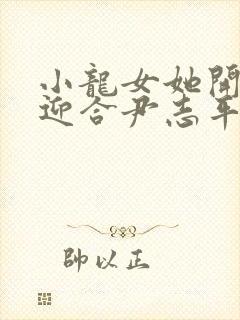 小龍女她開
迎合尹志平
帥以正